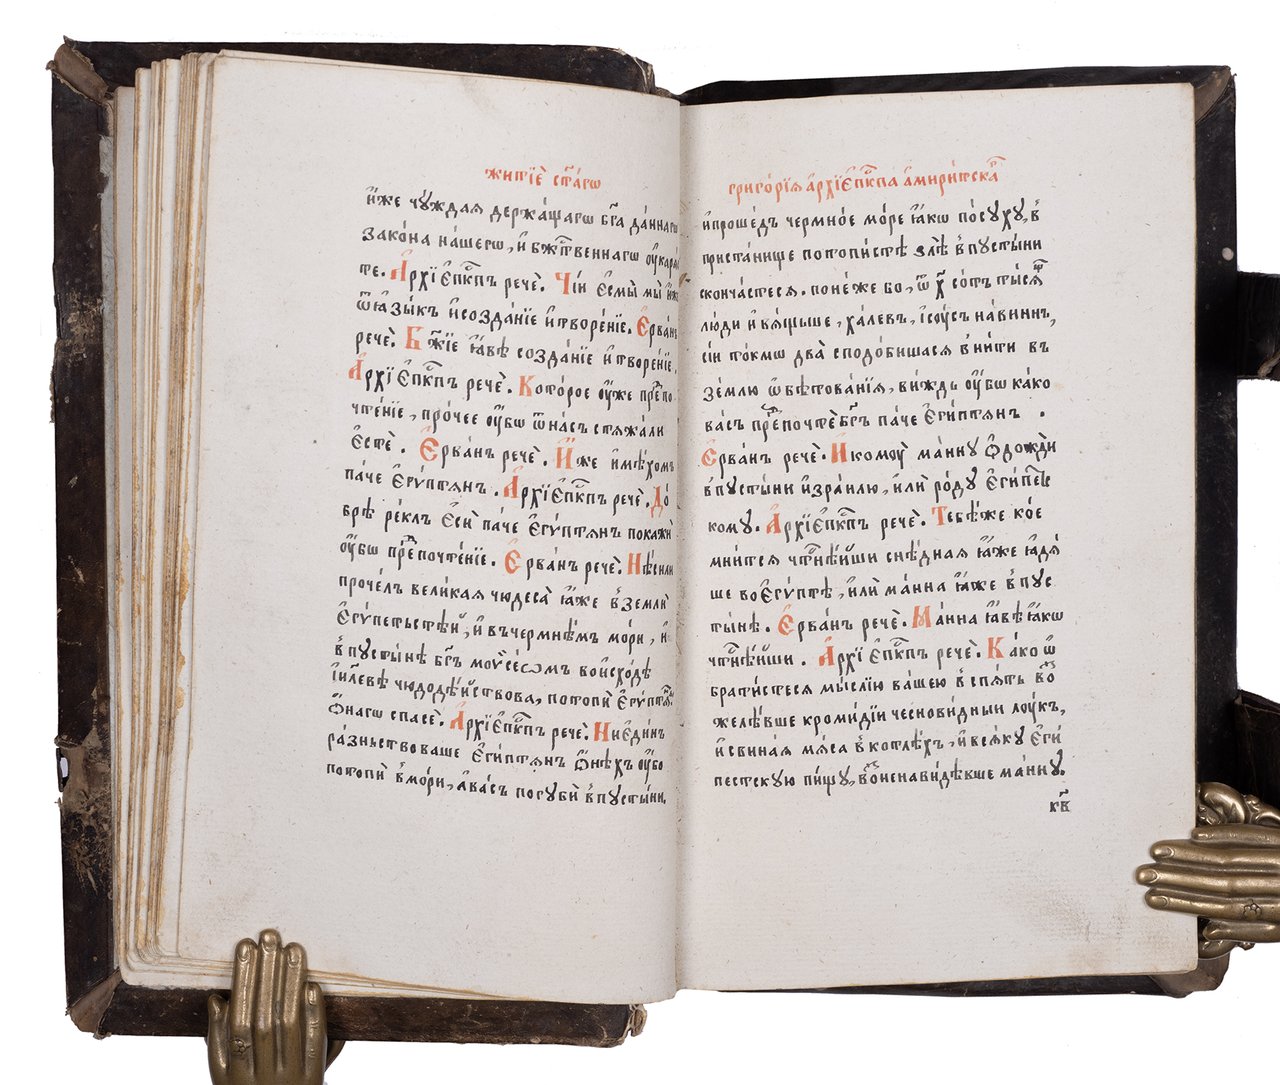 житїѐ ст҃а́гѡ
и҆́же чꙋждаѧ держа́щагѡ бг҃а да́ннагѡ
зако́на на́шегѡ, и҆ бж҃твеннагѡ ᲂу҆кара́е
те. А҆рхїе҆пⷭ҇кпъ речѐ. Чїи е҆смы̀ мы̀ и҆
ѿ ꙗ҆зы́къ и҆ созда́нїе и҆ творе́нїе. Е҆рва́нъ
речѐ. Бж҃їе ꙗ҆́вѣ созда́нїе и҆ творе́нїе.
А҆рхїе҆пⷭ҇кпъ речѐ. Кото́рое ᲂу҆́же пре́дпо
чте́нїе, про́чее ᲂу҆́бѡ ѿ на́съ стѧжа́ли
є҆стѐ. Е҆рва́нъ речѐ. И҆́же и҆мѣ́хомъ
па́че є҆гѵ́птѧнъ. А҆рхїе҆пⷭ҇кпъ речѐ. До́
брѣ ре́клъ є҆сѝ па́че є҆гѵ́птѧнъ покажѝ
ᲂу҆́бѡ пре́дпочте́нїе. Е҆рва́нъ речѐ. Нѣ́си ли
проче́лъ вели́каѧ чюдеса̀ ꙗ҆́же в҆ землѝ
є҆гѵ́петьстѣй, и҆ в чермнѣ́мъ мо́ри, и҆
в пꙋсты́нѣ бг҃ъ мои҆се́ѡмъ во и҆схо́дѣ
і҆и҃левѣ чюдодѣ́йствова, потопѝ є҆гѵ́птѧны
ѻ҆́нагѡ спасѐ. А҆рхїе҆пⷭ҇кпъ речѐ. Ни є҆ди́нъ
ра́зньство ва́ше є҆ги́птѧнъ ѻ҆́нѣхъ ᲂу҆́бо
потопѝ в҆ мо́ри, а҆ ва́съ погꙋбѝ в пꙋсты́ни.
григо́рїѧ а҆рхїе҆пⷭ҇кпа а҆мири́тска
и҆ проше́дъ чермно́е мо́ре ꙗ҆́кѡ по сꙋ́хꙋ, в҆
приста́нище потопи́стѣ ѕлѣ̀ в пꙋсты́ни
сконча́стесѧ. поне́же бо, ѿ х҃ со́тъ ты́сѧщ
лю́ди и҆ вѧ́щьше, ха́левъ, і҆сꙋ́съ нави́ннъ,
сі́и то́кмѡ два̀ сподо́бишасѧ вни́ти въ
зе́млю ѡ҆бѣтова́нїѧ, ви́ждь ᲂу҆́бѡ ка́ко
ва́съ пре́дпочтѐ бг҃ъ па́че є҆ги́птѧнъ .
Е҆рва́нъ речѐ. И҆ комᲂу̀ ма́ннꙋ ѻ҆дождѝ
в пꙋсты́ни и҆зра́илю, и҆лѝ ро́дꙋ є҆ги́петс
комꙋ. А҆рхїе҆пⷭ҇кпъ речѐ. Тебѣ́ же ко́е
мни́тсѧ чтⷭ҇нѣ́йши снѣ́днаѧ ꙗ҆́же ꙗ҆дѧ́
ше во є҆гѵ́птѣ, и҆лѝ ма́нна ꙗ҆́же в пꙋс
ты́не. Е҆рва́нъ речѐ. Ма́нна ꙗ҆́вѣ ꙗ҆́кѡ
чтⷭ҇нѣ́йши. А҆рхїе҆пⷭ҇кпъ речѐ. Ка́ко ѡ
брати́стесѧ мы́слїю ва́шею в спѧ́ть во
желѣ́вше кроми́дїи чесновидныи лꙋ́къ,
и҆ свина́ѧ мѧса̀ в котлѣ́хъ, и҆ всѧ́кꙋ є҆ги́
пестскꙋю пи́щꙋ, воз ненави́дѣвше ма́ннꙋ.
кв҃